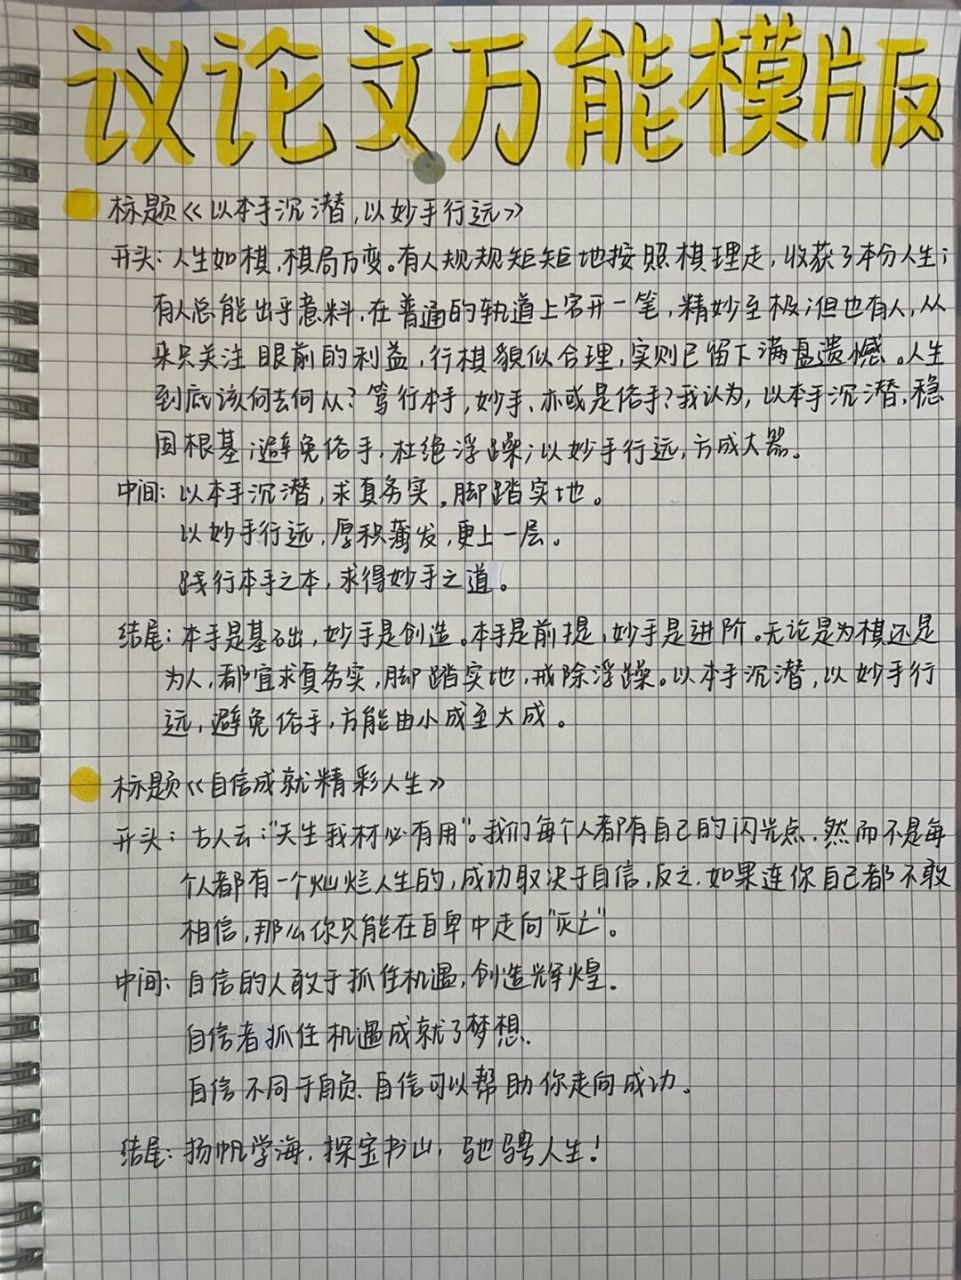 议论文万能模版
标题《以本手沉潜,以妙手行远》
开头:人生如棋,棋局万变。有人规规矩矩地按照棋理走,收获了本分人生;
有人总能出乎意料,在普通的轨道上宕开一笔,精妙至极;但也有人,从
来只关注眼前的利益,行棋貌似合理,实则已留下满盘遗憾。人生
到底该何去何从?笃行本手,妙手、亦或是俗手?我认为,以本手沉潜,稳
固根基;避免俗手,杜绝浮躁;以妙手行远,方成大器。
中间:以本手沉潜,求真务实,脚踏实地。
以妙手行远,厚积薄发,更上一层。
践行本手之本,求得妙手之道。
结尾:本手是基础,妙手是创造。本手是前提,妙手是进阶。无论是为棋还是
为人,都宜求真务实,脚踏实地,戒除浮躁。以本手沉潜,以妙手行
远,避免俗手,方能由小成至大成。
标题《自信成就精彩人生》
开头:古人云:"天生我材必有用"。我们每个人都有自己的闪光点.然而不是每
个人都有一个灿烂人生的,成功取决于自信,反之.如果连你自己都不敢
相信,那么你只能在自卑中走向"灭亡"。
中间:自信的人敢于抓住机遇,创造辉煌.
自信者抓住机遇成就了梦想.
自信不同于自负.自信可以帮助你走向成功。
结尾:扬帆学海,探宝书山,驰骋人生!